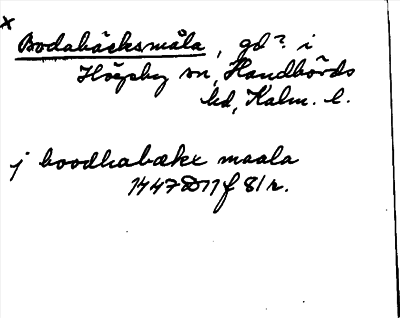 x
Bodabäcksmåla, gd? i
Högsby sn, Handbörds
hd, Kalm. l.
j boodhabækx maala
1447 D 11 f 81 r.